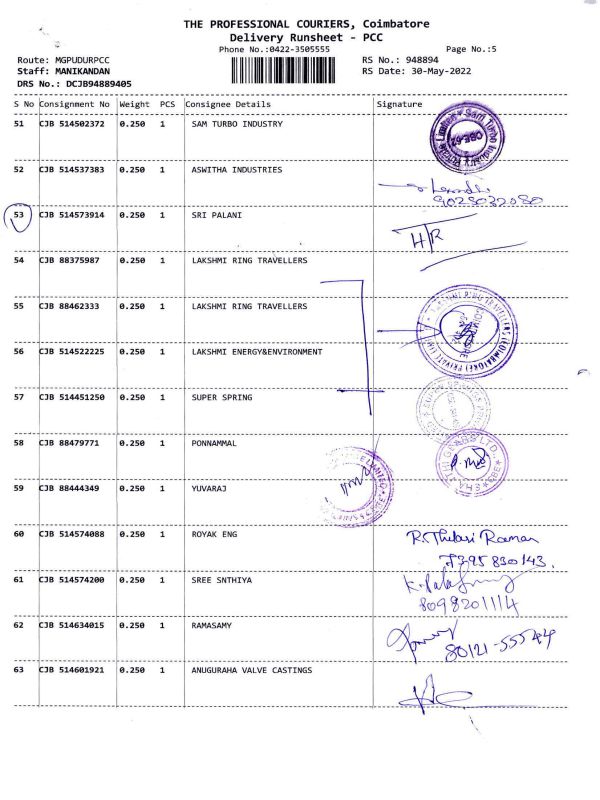 THE PROFESSIONAL COURIERS, Coimbatore
Delivery Runsheet - PCC
Phone No.:0422-3505555 Page No.:5
Route: MGPUDURPCC RS No.: 948894
Staff: MANIKANDAN RS Date: 30-May-2022
DRS No.: DCJB94889405
S No Consignment No Weight PCS Consignee Details Signature
51 CJB 514502372 0.250 1 SAM TURBO INDUSTRY
52 CJB 514537383 0.250 1 ASWITHA INDUSTRIES
9028032080
53 CJB 514573914 0.250 1 SRI PALANI
H/R
54 CJB 88375987 0.250 1 LAKSHMI RING TRAVELLERS
55 CJB 88462333 0.250 1 LAKSHMI RING TRAVELLERS
56 CJB 514522225 0.250 1 LAKSHMI ENERGY&ENVIRONMENT
57 CJB 514451250 0.250 1 SUPER SPRING
58 CJB 88479771 0.250 1 PONNAMMAL
59 CJB 88444349 0.250 1 YUVARAJ
60 CJB 514574088 0.250 1 ROYAK ENG R.Thulasi Raman
7395 830143.
61 CJB 514574200 0.250 1 SREE SNTHIYA
8098201114
62 CJB 514634015 0.250 1 RAMASAMY
80121-55544
63 CJB 514601921 0.250 1 ANUGURAHA VALVE CASTINGS